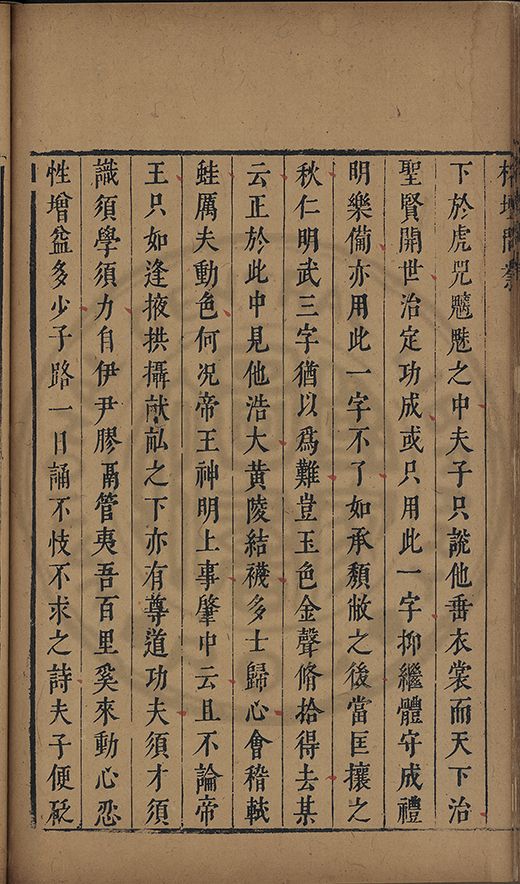 榕壇問業
下於虎兕魑魅之中夫子只說他垂衣裳而天下治
聖賢開世治定功成或只用此一字抑繼體守成禮
明樂備亦用此一字不了如承頹敝之後當匡攘之
秋仁明武三字猶以為難豈玉色金聲脩拾得去某
云正於此中見他浩大黃陵結襪多士歸心會稽軾
蛙厲夫動色何況帝王神明上事肇中云且不論帝
王只如逢掖拱攝猷訟之下亦有尊道功夫須才須
識須學須力自伊尹膠鬲管夷吾百里奚來動心忍
性增益多少子路一日誦不忮不求之詩夫子便砭